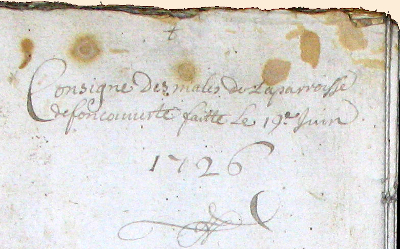 Consigne Des males de Laparroisse
defoncouverte faitte Le 19.e Juin
1726